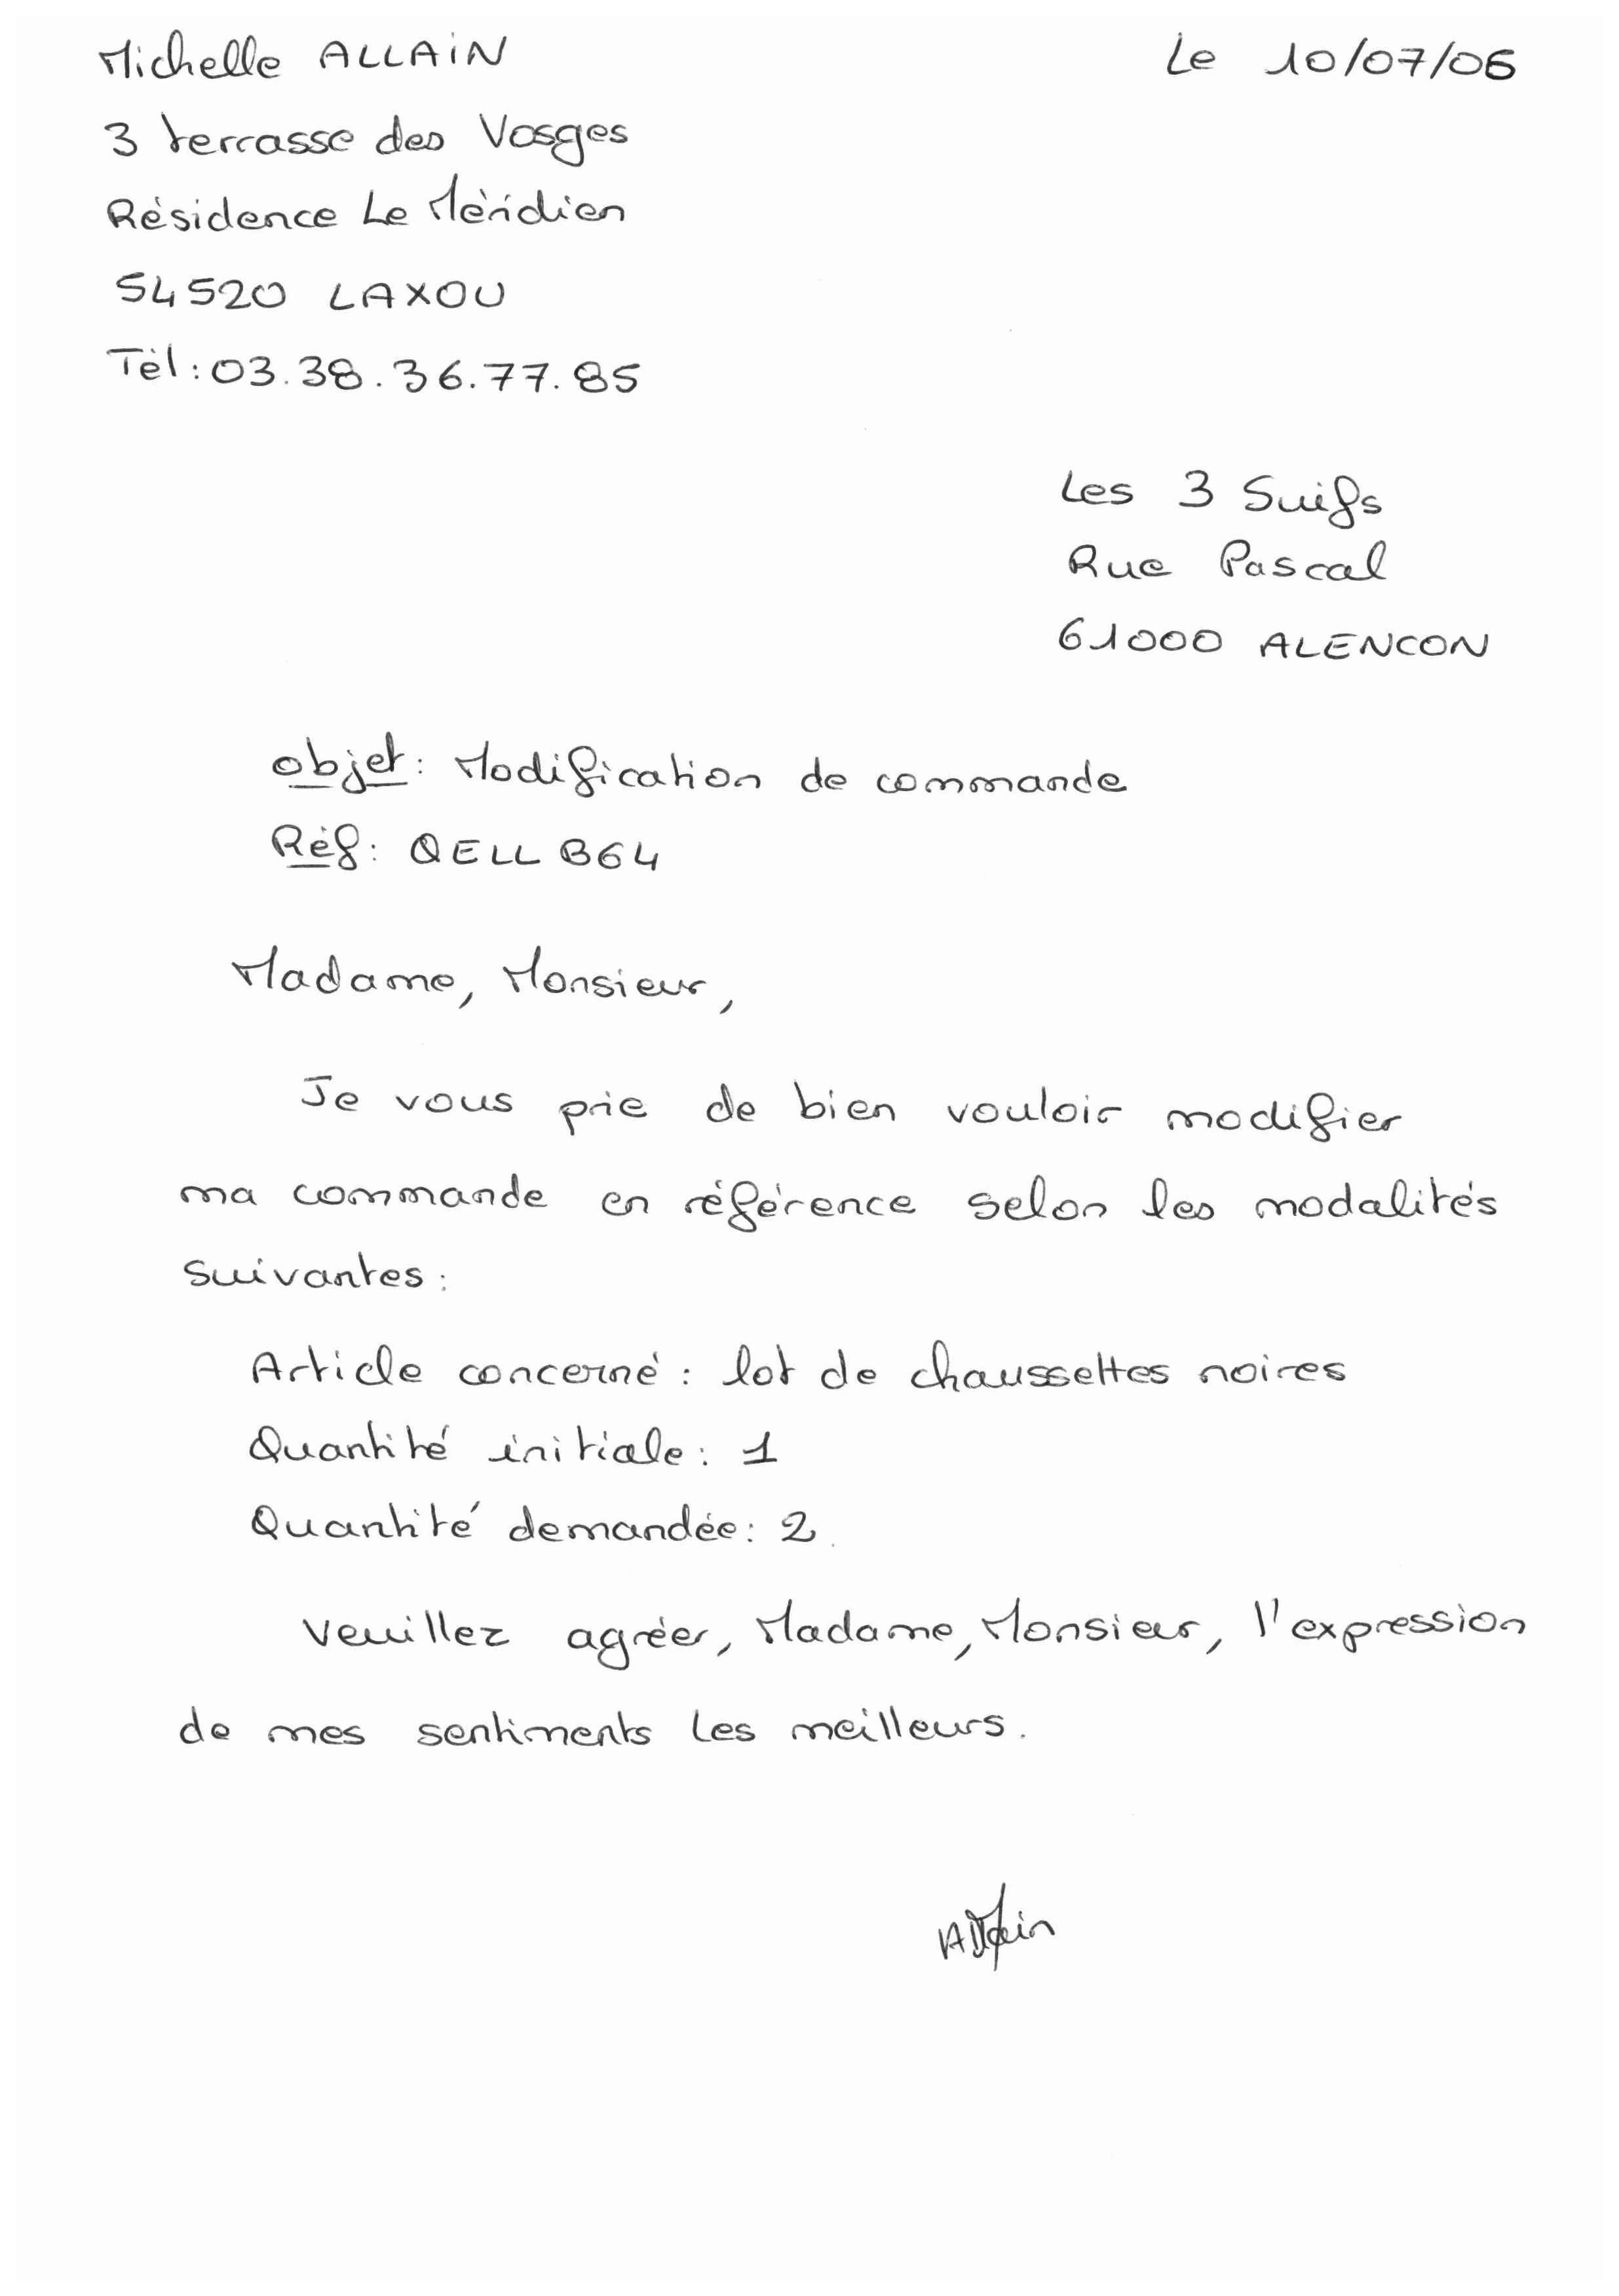 Michelle ALLAIN
Le 10/07/06
3 terrasse des Vosges
Résidence Le Méridien
54520 LAXOU
Tél : 03.38.36.77.85
Les 3 Suifs
Rue Pascal
61000 ALENCON
objet : Modification de commande
Réf : QELLB64
Madame, Monsieur,
Je vous prie de bien vouloir modifier
ma commande en référence selon les modalités
suivantes :
Article concerné : lot de chaussettes noires
Quantité initiale : 1
Quantité demandée : 2
Veuillez agréer, Madame, Monsieur, l'expression
de mes sentiments les meilleurs.
Allain